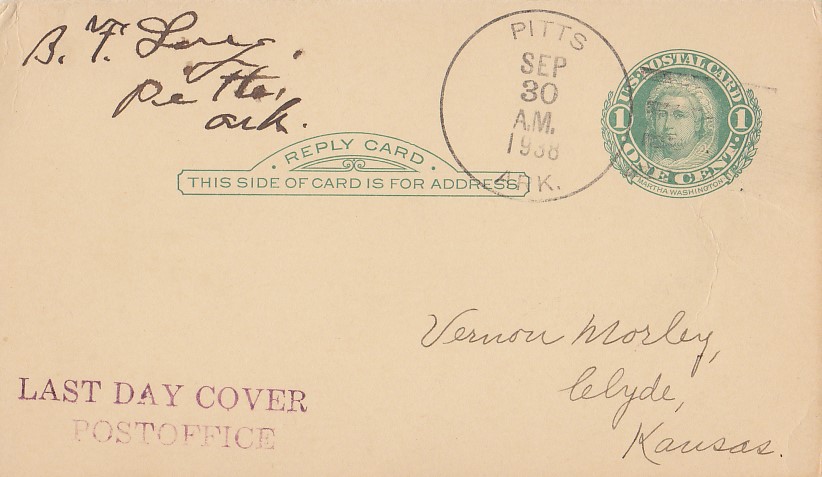 B. F.
Pitts,
Ark.
PITTS
SEP
30
A.M.
1938
ARK.
U.S. POSTAL CARD
1 1
ONE CENT
MARTHA WASHINGTON
· REPLY CARD ·
THIS SIDE OF CARD IS FOR ADDRESS
Vernon Morley,
Clyde,
Kansas.
LAST DAY COVER
POSTOFFICE